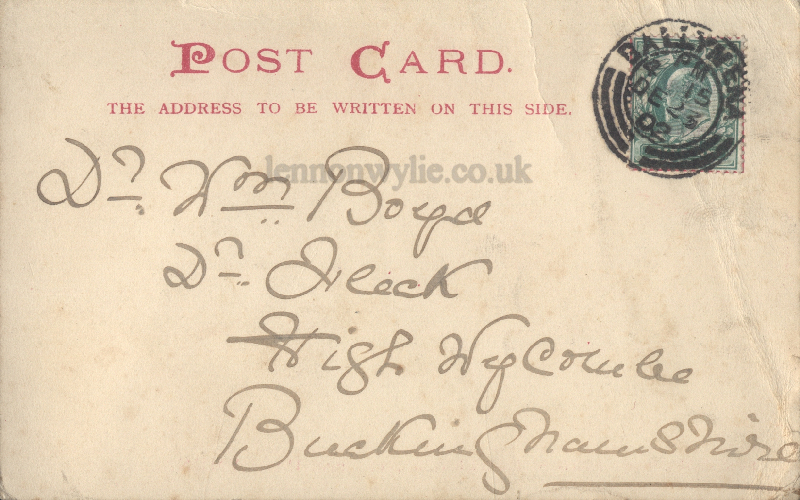 POST CARD.
THE ADDRESS TO BE WRITTEN ON THIS SIDE.
BALLYMENA
lennonwylie.co.uk
Dr. Wm Boyd
Dr. Fleck
High Wycombe
Buckinghamshire